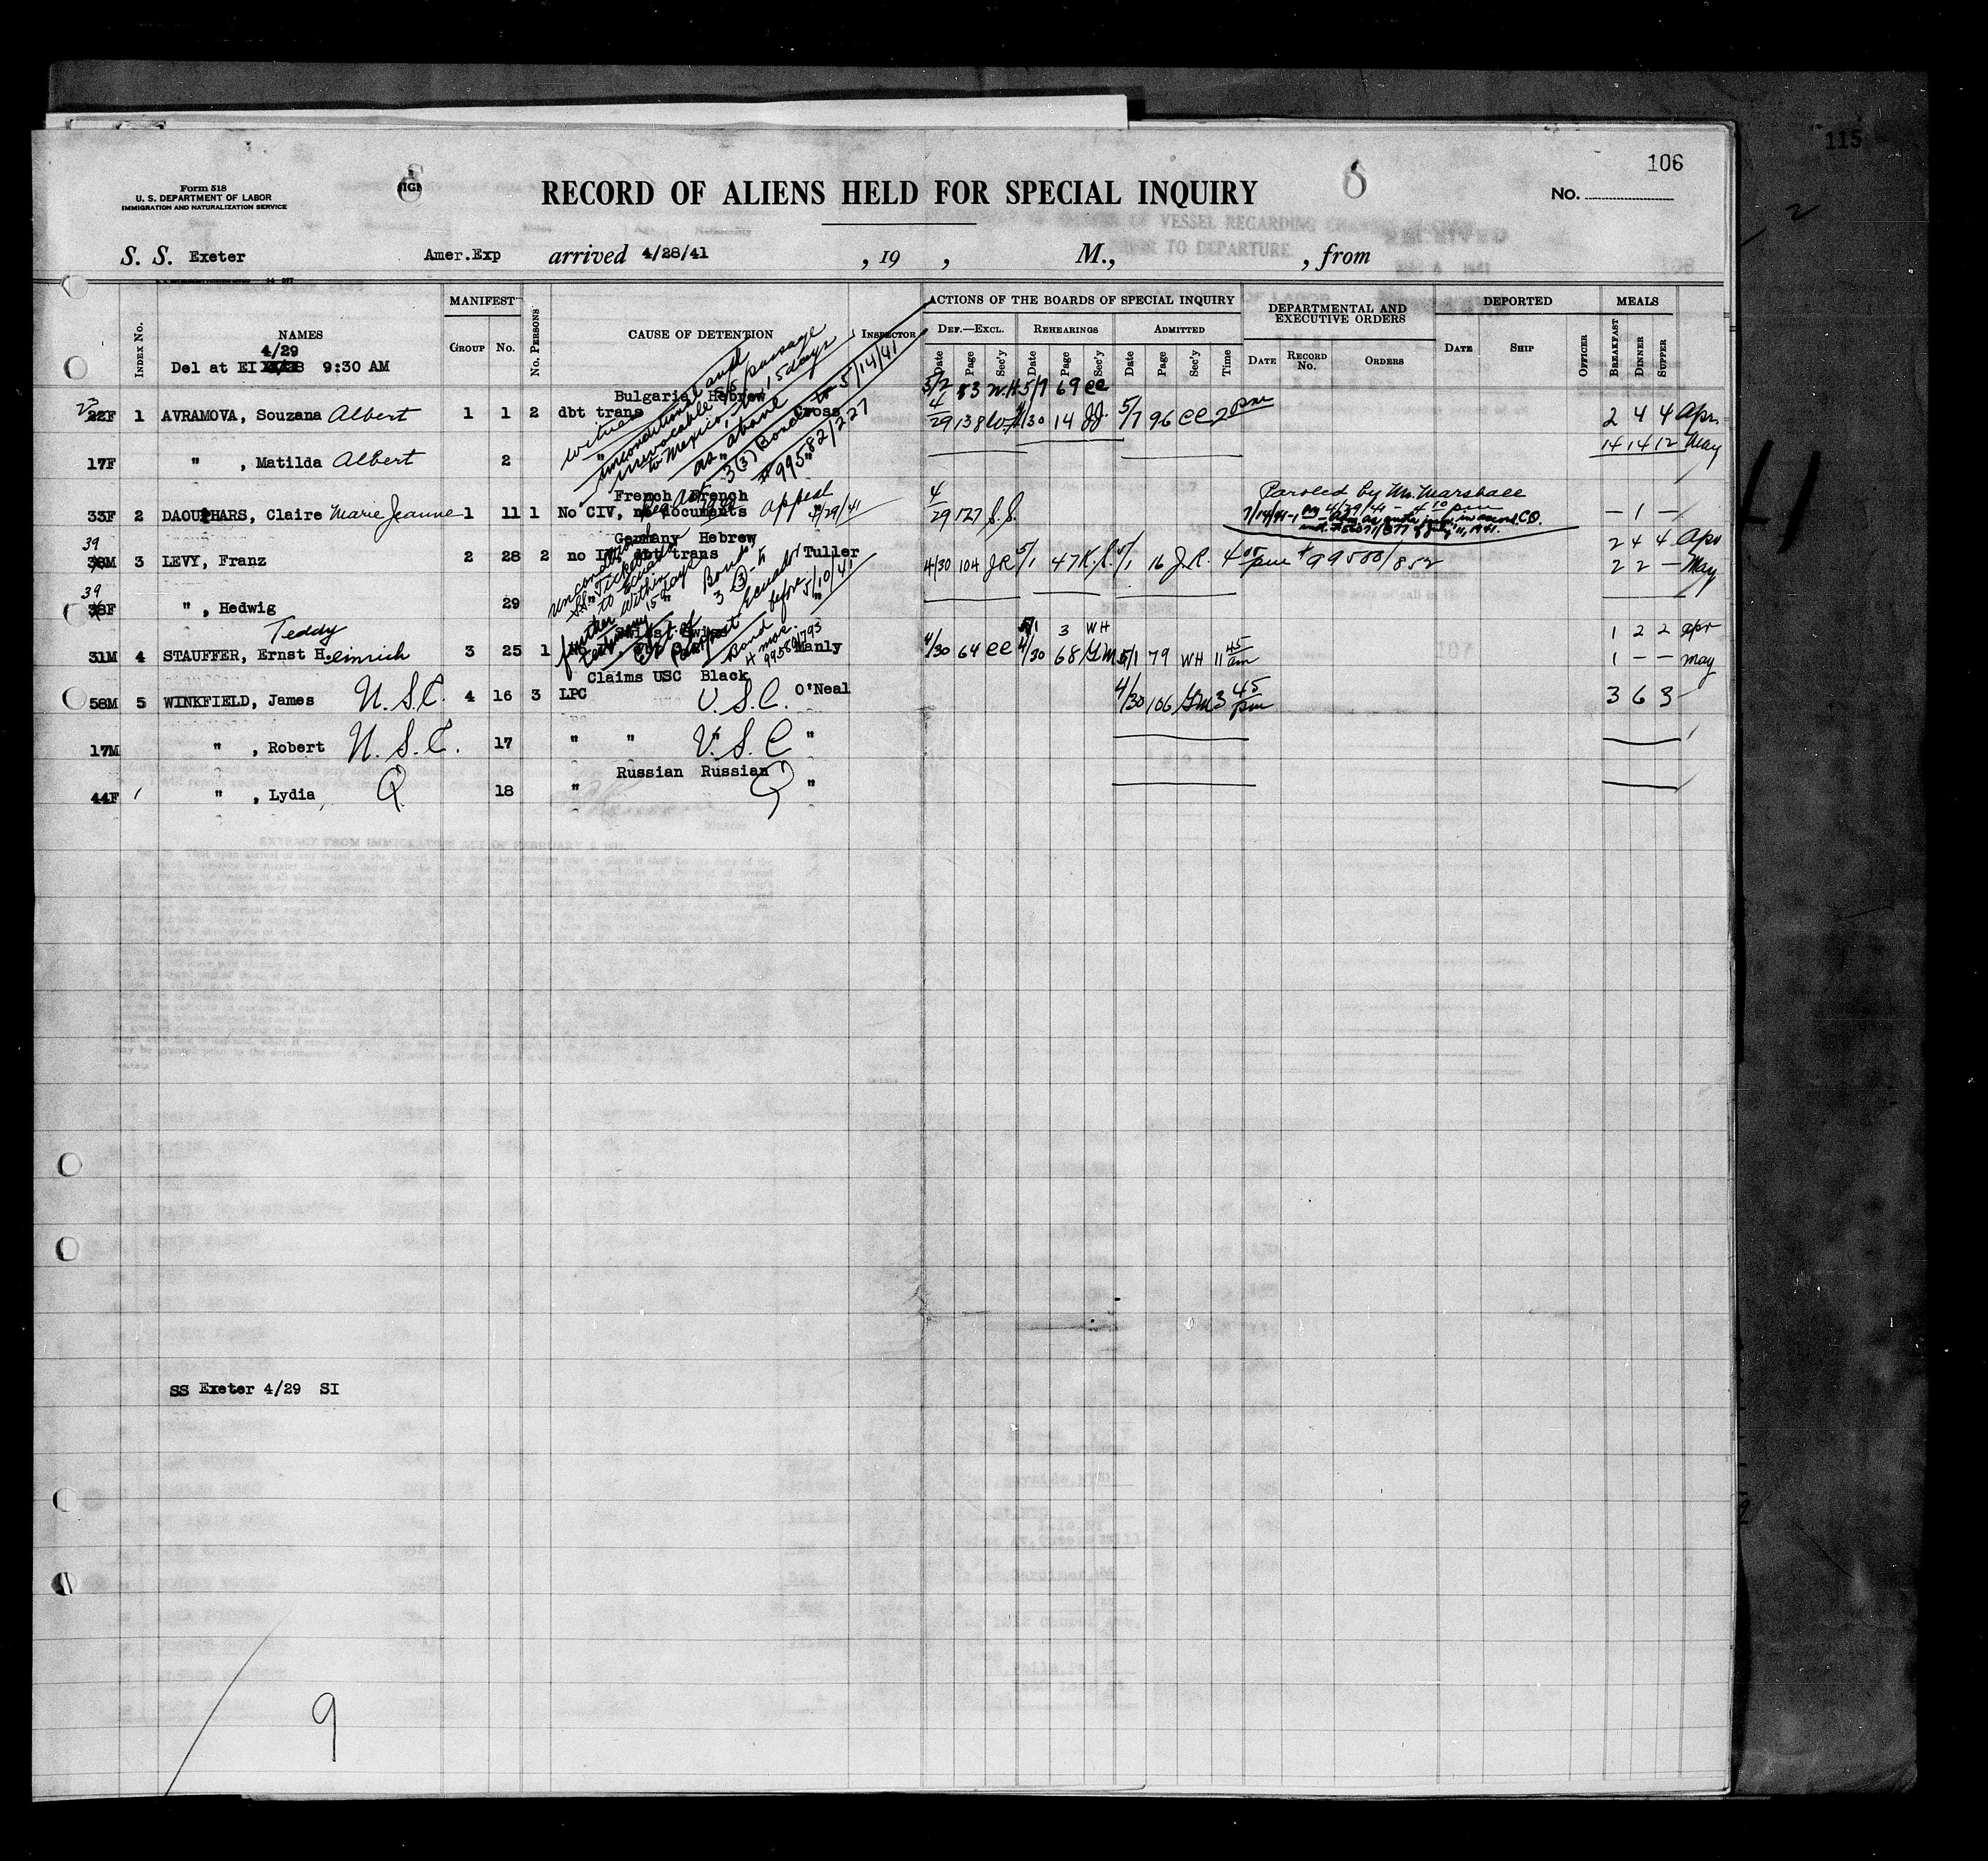 115
106
Form 518
U. S. DEPARTMENT OF LABOR
IMMIGRATION AND NATURALIZATION SERVICE
RECORD OF ALIENS HELD FOR SPECIAL INQUIRY
8
No.
S. S. Exeter Amer.Exp arrived 4/28/41 , 19 , M., , from
INDEX No. NAMES MANIFEST GROUP No. No. PERSONS CAUSE OF DETENTION INSPECTOR
ACTIONS OF THE BOARDS OF SPECIAL INQUIRY
DEF.—EXCL. REHEARINGS ADMITTED
Date Page Sec'y Date Page Sec'y Date Page Sec'y Time
DEPARTMENTAL AND EXECUTIVE ORDERS
DATE RECORD No. ORDERS
DEPORTED
DATE SHIP OFFICER
MEALS
BREAKFAST DINNER SUPPER
4/29
Del at EI 9:30 AM
Bulgaria Hebrew 5/2 83 W.H 5/7 69 CC
23 22F 1 AVRAMOVA, Souzana Albert 1 1 2 dbt trans Cross 4/29 138 4/30 14 JJ 5/7 96 CC 2 pm 2 4 4 Apr.
14 14 12 May
17F " , Matilda Albert 2 "
unconditional and
irrevocable SS passage
to Mexico, in 15 days
as above
3(3) Bond to 5/14/41
# 99582/227
French French
33F 2 DAOUPHARS, Claire Marie Jeanne 1 11 1 No CIV, no documents appeal 4/29/41 " 4/29 127 S.S. — 1 —
Paroled by Mr. Marshall
4/29/41 — 4 10 pm
Germany Hebrew
39 38M 3 LEVY, Franz 2 28 2 no IV dbt trans Tuller 4/30 104 JR 5/1 47 K.R. 5/1 16 J.R. 4 05 pm # 99580/852 2 4 4 Apr
2 2 — May
39 38F " , Hedwig 29 "
unconditional
SS Ticket
to Ecuador
within
15 days
Bond
3
Ecuador
before
5/10/41
Teddy
Swiss Swiss 5/1 3 WH
31M 4 STAUFFER, Ernst Heinrich 3 25 1 Manly 4/30 64 CC 4/30 68 GM 5/1 79 WH 11 45 am 1 2 2 apr
1 — — may
further
testimony
Bond
4 mos.
99580/793
Claims USC Black
58M 5 WINKFIELD, James U.S.C. 4 16 3 LPC U.S.C. O'Neal 4/30 106 GM 3 45 pm 3 6 3
17M " , Robert U.S.C. 17 " " U.S.C "
Russian Russian
44F " , Lydia Q 18 " Q "
SS Exeter 4/29 SI
9